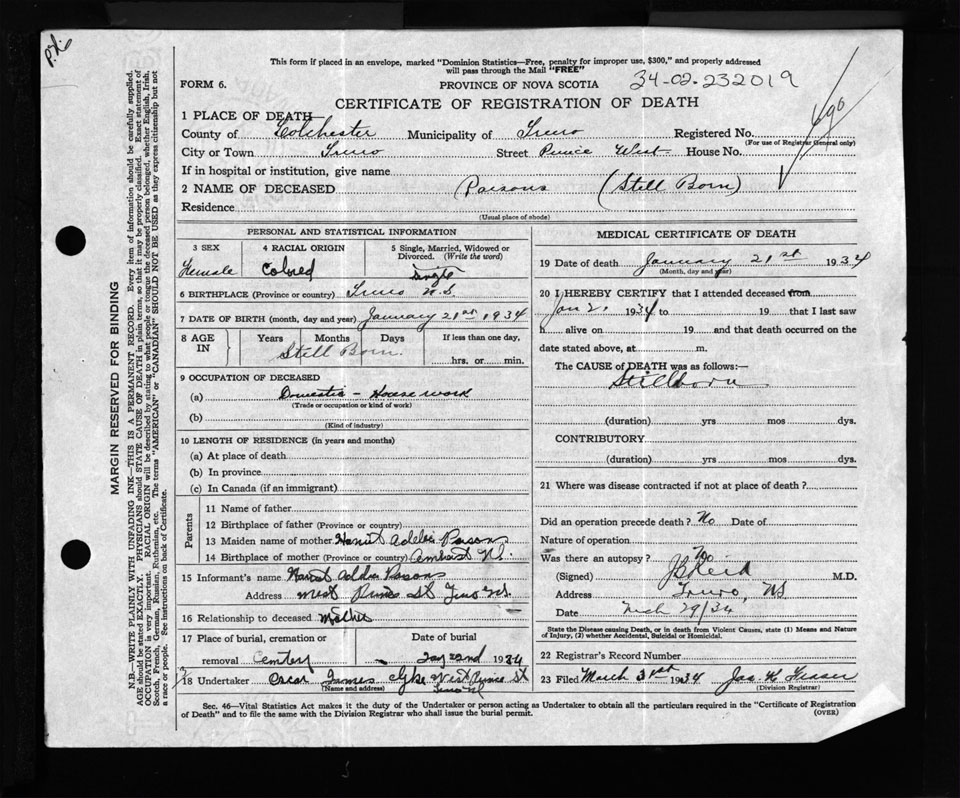 P.L.
This form if placed in an envelope, marked "Dominion Statistics—Free, penalty for improper use, $300," and properly addressed
will pass through the Mail "FREE"
FORM 6.
PROVINCE OF NOVA SCOTIA
34-02-232019
CERTIFICATE OF REGISTRATION OF DEATH
1 PLACE OF DEATH
County of Colchester Municipality of Truro Registered No.
(For use of Registrar General only)
City or Town Truro Street Prince West House No.
If in hospital or institution, give name
2 NAME OF DECEASED Parsons (Still Born)
Residence
(Usual place of abode)
PERSONAL AND STATISTICAL INFORMATION
3 SEX 4 RACIAL ORIGIN 5 Single, Married, Widowed or
Divorced. (Write the word)
Female Colored Single
6 BIRTHPLACE (Province or country) Truro N.S.
7 DATE OF BIRTH (month, day and year) January 21st 1934
8 AGE
IN
Years Months Days If less than one day,
Still Born. hrs. or min.
9 OCCUPATION OF DECEASED
(a) Domestic - House work
(Trade or occupation or kind of work)
(b)
(Kind of industry)
10 LENGTH OF RESIDENCE (in years and months)
(a) At place of death
(b) In province
(c) In Canada (if an immigrant)
Parents
11 Name of father
12 Birthplace of father (Province or country)
13 Maiden name of mother Parsons
14 Birthplace of mother (Province or country) Amherst N.S.
15 Informant's name Parsons
Address West Prince St Truro N.S.
16 Relationship to deceased Mother
17 Place of burial, cremation or Date of burial
removal Cemtery 22nd 1934
18 Undertaker Oscar James West Prince St
(Name and address) Truro N.S.
MEDICAL CERTIFICATE OF DEATH
19 Date of death January 21st 1934
(Month, day and year)
20 I HEREBY CERTIFY that I attended deceased from
Jan 21 1934 to 19 that I last saw
h alive on 19 and that death occurred on the
date stated above, at m.
The CAUSE of DEATH was as follows:—
Stillborn
(duration) yrs mos dys.
CONTRIBUTORY
(duration) yrs mos dys.
21 Where was disease contracted if not at place of death ?
Did an operation precede death ? No Date of
Nature of operation
Was there an autopsy ? No
(Signed) J B Reid M.D.
Address Truro, N.S.
Date Mch 29/34
State the Disease causing Death, or in death from Violent Causes, state (1) Means and Nature
of Injury, (2) whether Accidental, Suicidal or Homicidal.
22 Registrar's Record Number
23 Filed March 31st 1934 Jas. H. Fraser
(Division Registrar)
Sec. 46—Vital Statistics Act makes it the duty of the Undertaker or person acting as Undertaker to obtain all the particulars required in the "Certificate of Registration
of Death" and to file the same with the Division Registrar who shall issue the burial permit.
(OVER)
MARGIN RESERVED FOR BINDING
N.B.—WRITE PLAINLY WITH UNFADING INK—THIS IS A PERMANENT RECORD. Every item of information should be carefully supplied.
AGE should be stated EXACTLY. PHYSICIANS should STATE CAUSE OF DEATH in plain terms, so that it may be properly classified. Exact statement of
OCCUPATION is very important. RACIAL ORIGIN will be described by stating to what people or tongue the deceased person belonged, whether English, Irish,
Scotch, French, German, Russian, Ruthenian, etc. The terms "AMERICAN" or "CANADIAN" SHOULD NOT BE USED as they express citizenship but not
a race or people. See instructions on back of Certificate.